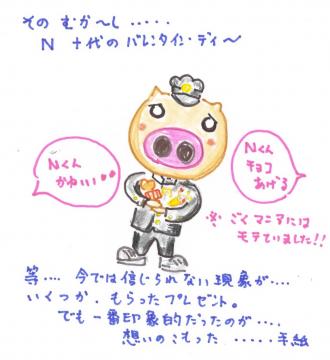 その むか〜し ・・・・・
N 十代の バレンタイン・デイ〜
Nくん
かわいい
Nくん
チョコ
あげる
※ ごくマニアには
モテていました!!
等・・・・ 今では信じられない現象が・・・・
いくつか. もらったプレゼント。
でも一番印象的だったのが・・・・・
想いのこもった ・・・・・手紙